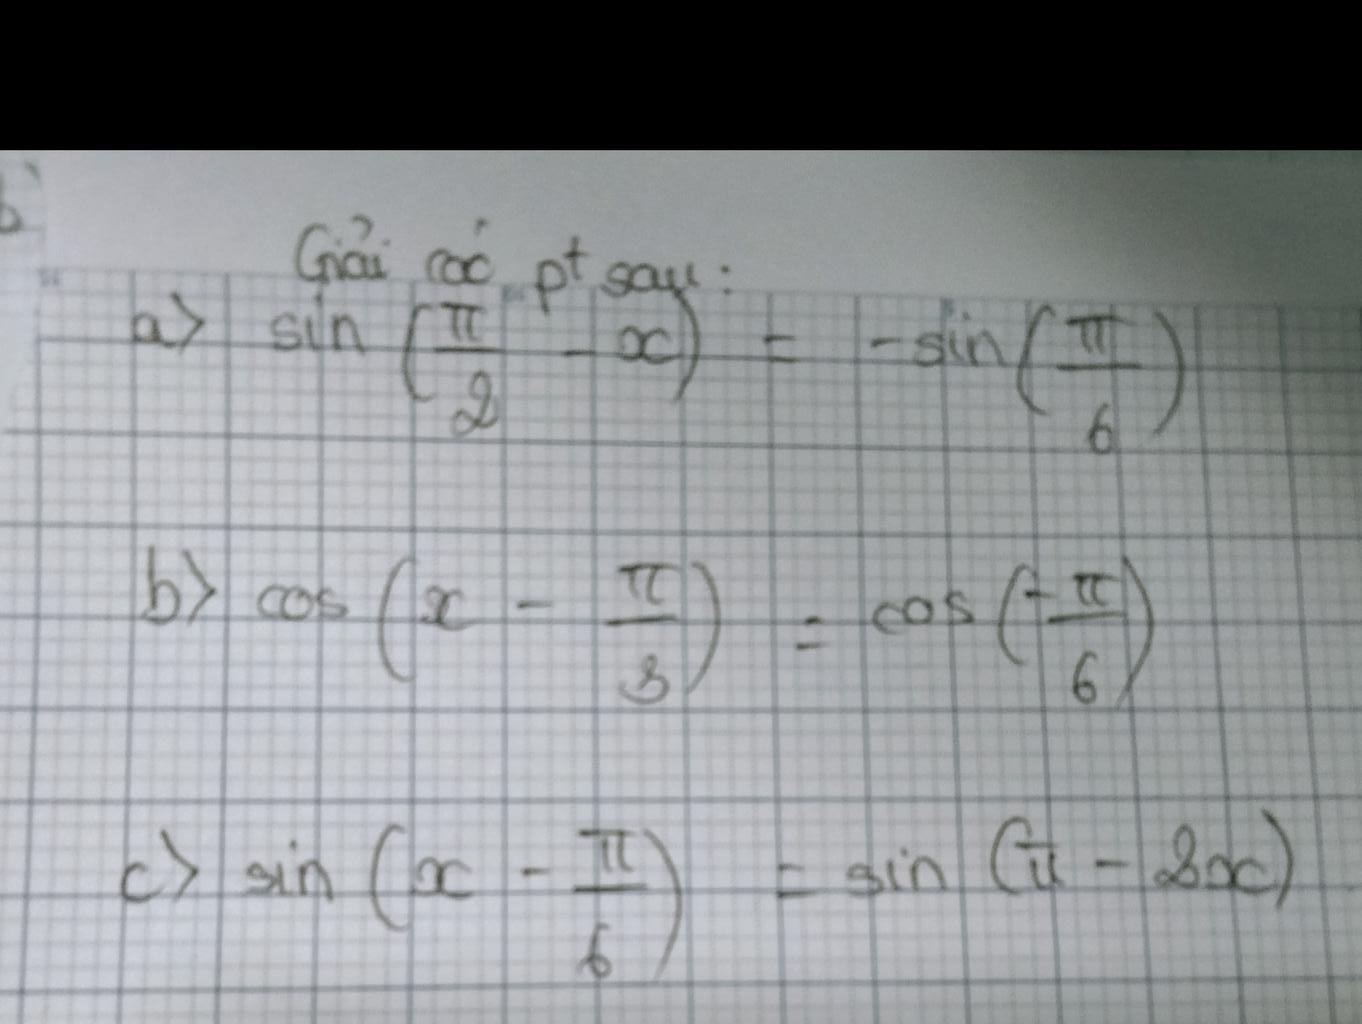 Giải các pt sau:
a> sin (π/2 - x) = -sin (π/6)
b> cos (x - π/3) = cos (-π/6)
c> sin (x - π/6) = sin (π - 2x)